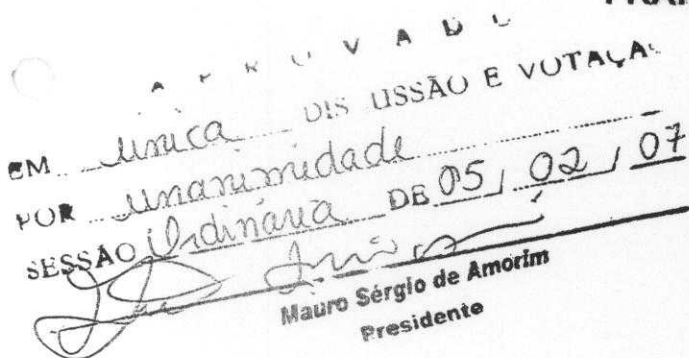 APROVADO
EM única DISCUSSÃO E VOTAÇÃO
POR unanimidade
SESSÃO Ordinária DE 05 / 02 / 07
Mauro Sérgio de Amorim
Presidente